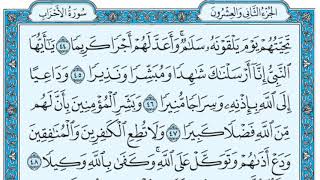 سُورَةُ الأَحْزَابِ
الجُزْءُ الثَّانِي وَالعِشْرُونَ
تَحِيَّتُهُمْ يَوْمَ يَلْقَوْنَهُۥ سَلَٰمٌ وَأَعَدَّ لَهُمْ أَجْرًا كَرِيمًا ٤٤ يَٰٓأَيُّهَا
ٱلنَّبِيُّ إِنَّآ أَرْسَلْنَٰكَ شَٰهِدًا وَمُبَشِّرًا وَنَذِيرًا ٤٥ وَدَاعِيًا
إِلَى ٱللَّهِ بِإِذْنِهِۦ وَسِرَاجًا مُّنِيرًا ٤٦ وَبَشِّرِ ٱلْمُؤْمِنِينَ بِأَنَّ لَهُم
مِّنَ ٱللَّهِ فَضْلًا كَبِيرًا ٤٧ وَلَا تُطِعِ ٱلْكَٰفِرِينَ وَٱلْمُنَٰفِقِينَ
وَدَعْ أَذَىٰهُمْ وَتَوَكَّلْ عَلَى ٱللَّهِ وَكَفَىٰ بِٱللَّهِ وَكِيلًا ٤٨